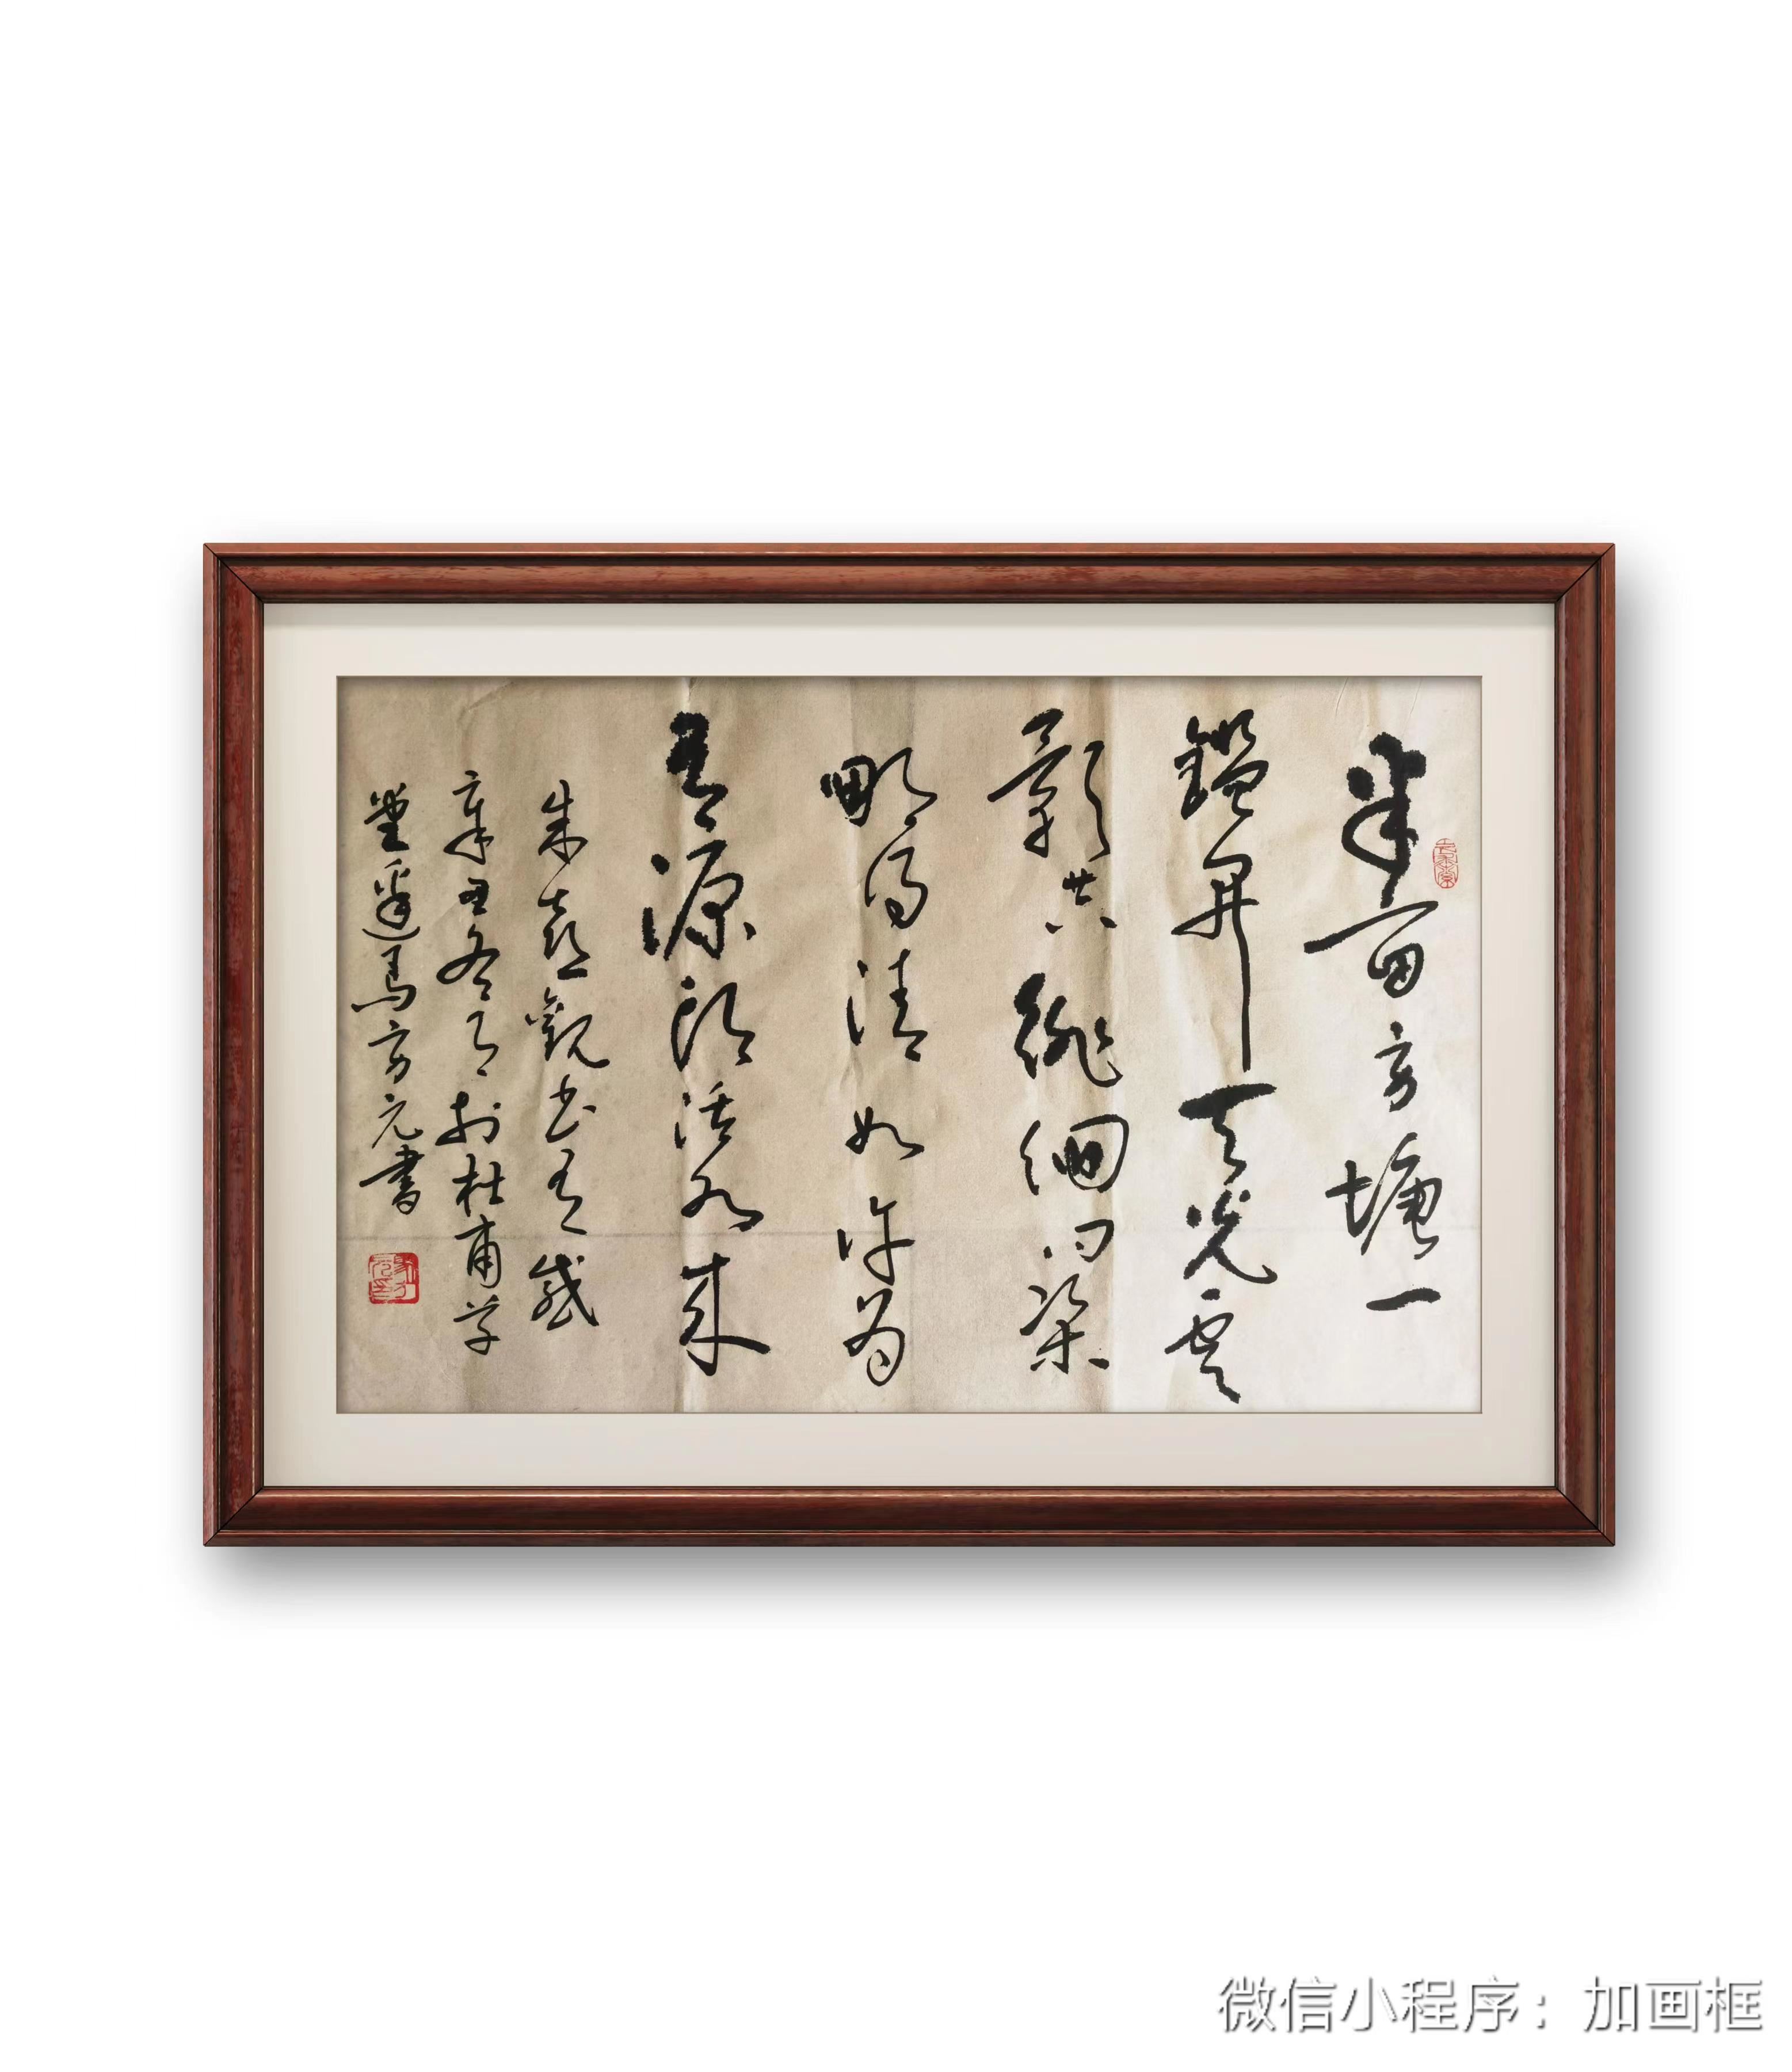 半亩方塘一
鑑开天光云
影共徘徊问渠
那得清如许为
有源头活水来
朱熹觀书有感
辛丑冬月于杜甫草
堂马方元書
微信小程序：加画框